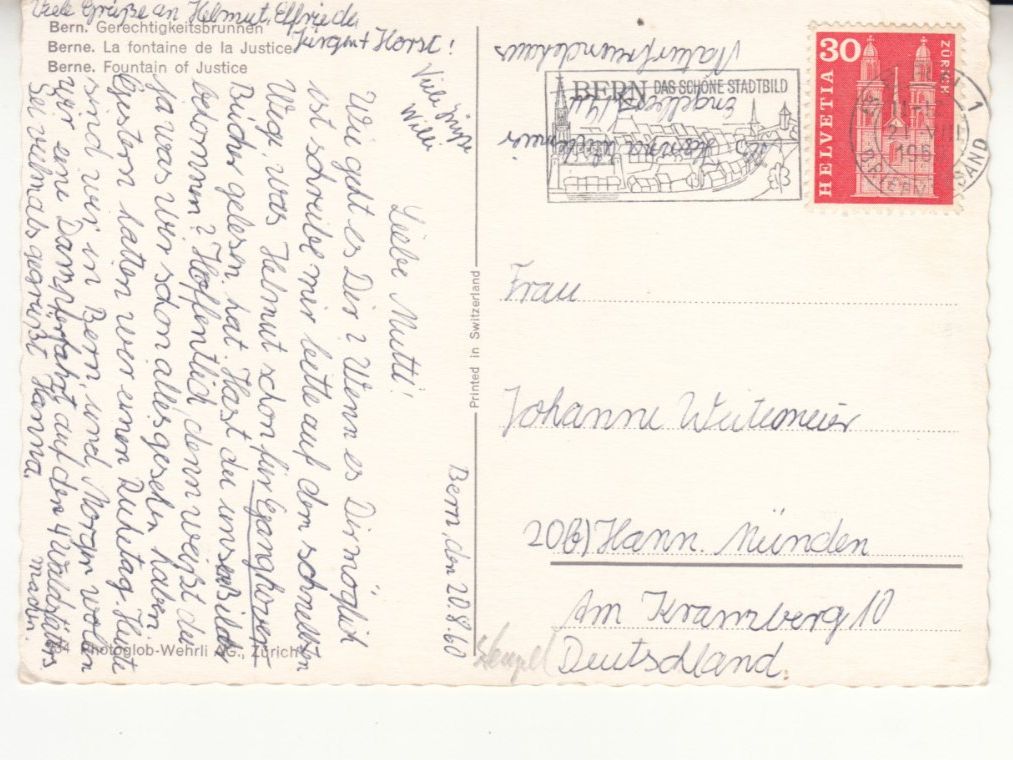 Viele Grüße an Helmut, Elfriede,
Jürgen + Horst!
Bern. Gerechtigkeitsbrunnen
Berne. La fontaine de la Justice
Berne. Fountain of Justice
Viele Grüße
Willi
Bern, den 20.8.60
Liebe Mutti!
Wie geht es Dir? Wenn es Dir möglich
ist schreibe mir bitte auf dem schnellsten
Wege, was Helmut schon für Ganghover
Bücher gelesen hat. Hast du unsere Bilder
bekommen? Hoffentlich, denn weißt du
ja was wir schon alles gesehen haben.
Gestern hatten wir einen Ruhetag. Heute
sind wir in Bern und Morgen wolen
wir eine Dampferfahrt auf den 4 Waldstätters
machen.
Sei vielmals gegrüßt Hanna.
34 Photoglob-Wehrli AG., Zürich
Printed in Switzerland
Naturfreundehaus
Engelberg
BERN DAS SCHÖNE STADTBILD
HELVETIA
30
ZÜRICH
1
BRIEFVERSAND
Frau
Johanne Weitemeier
20(b) Hann. Münden
Am Kranzberg 10
Deutschland.
Stempel